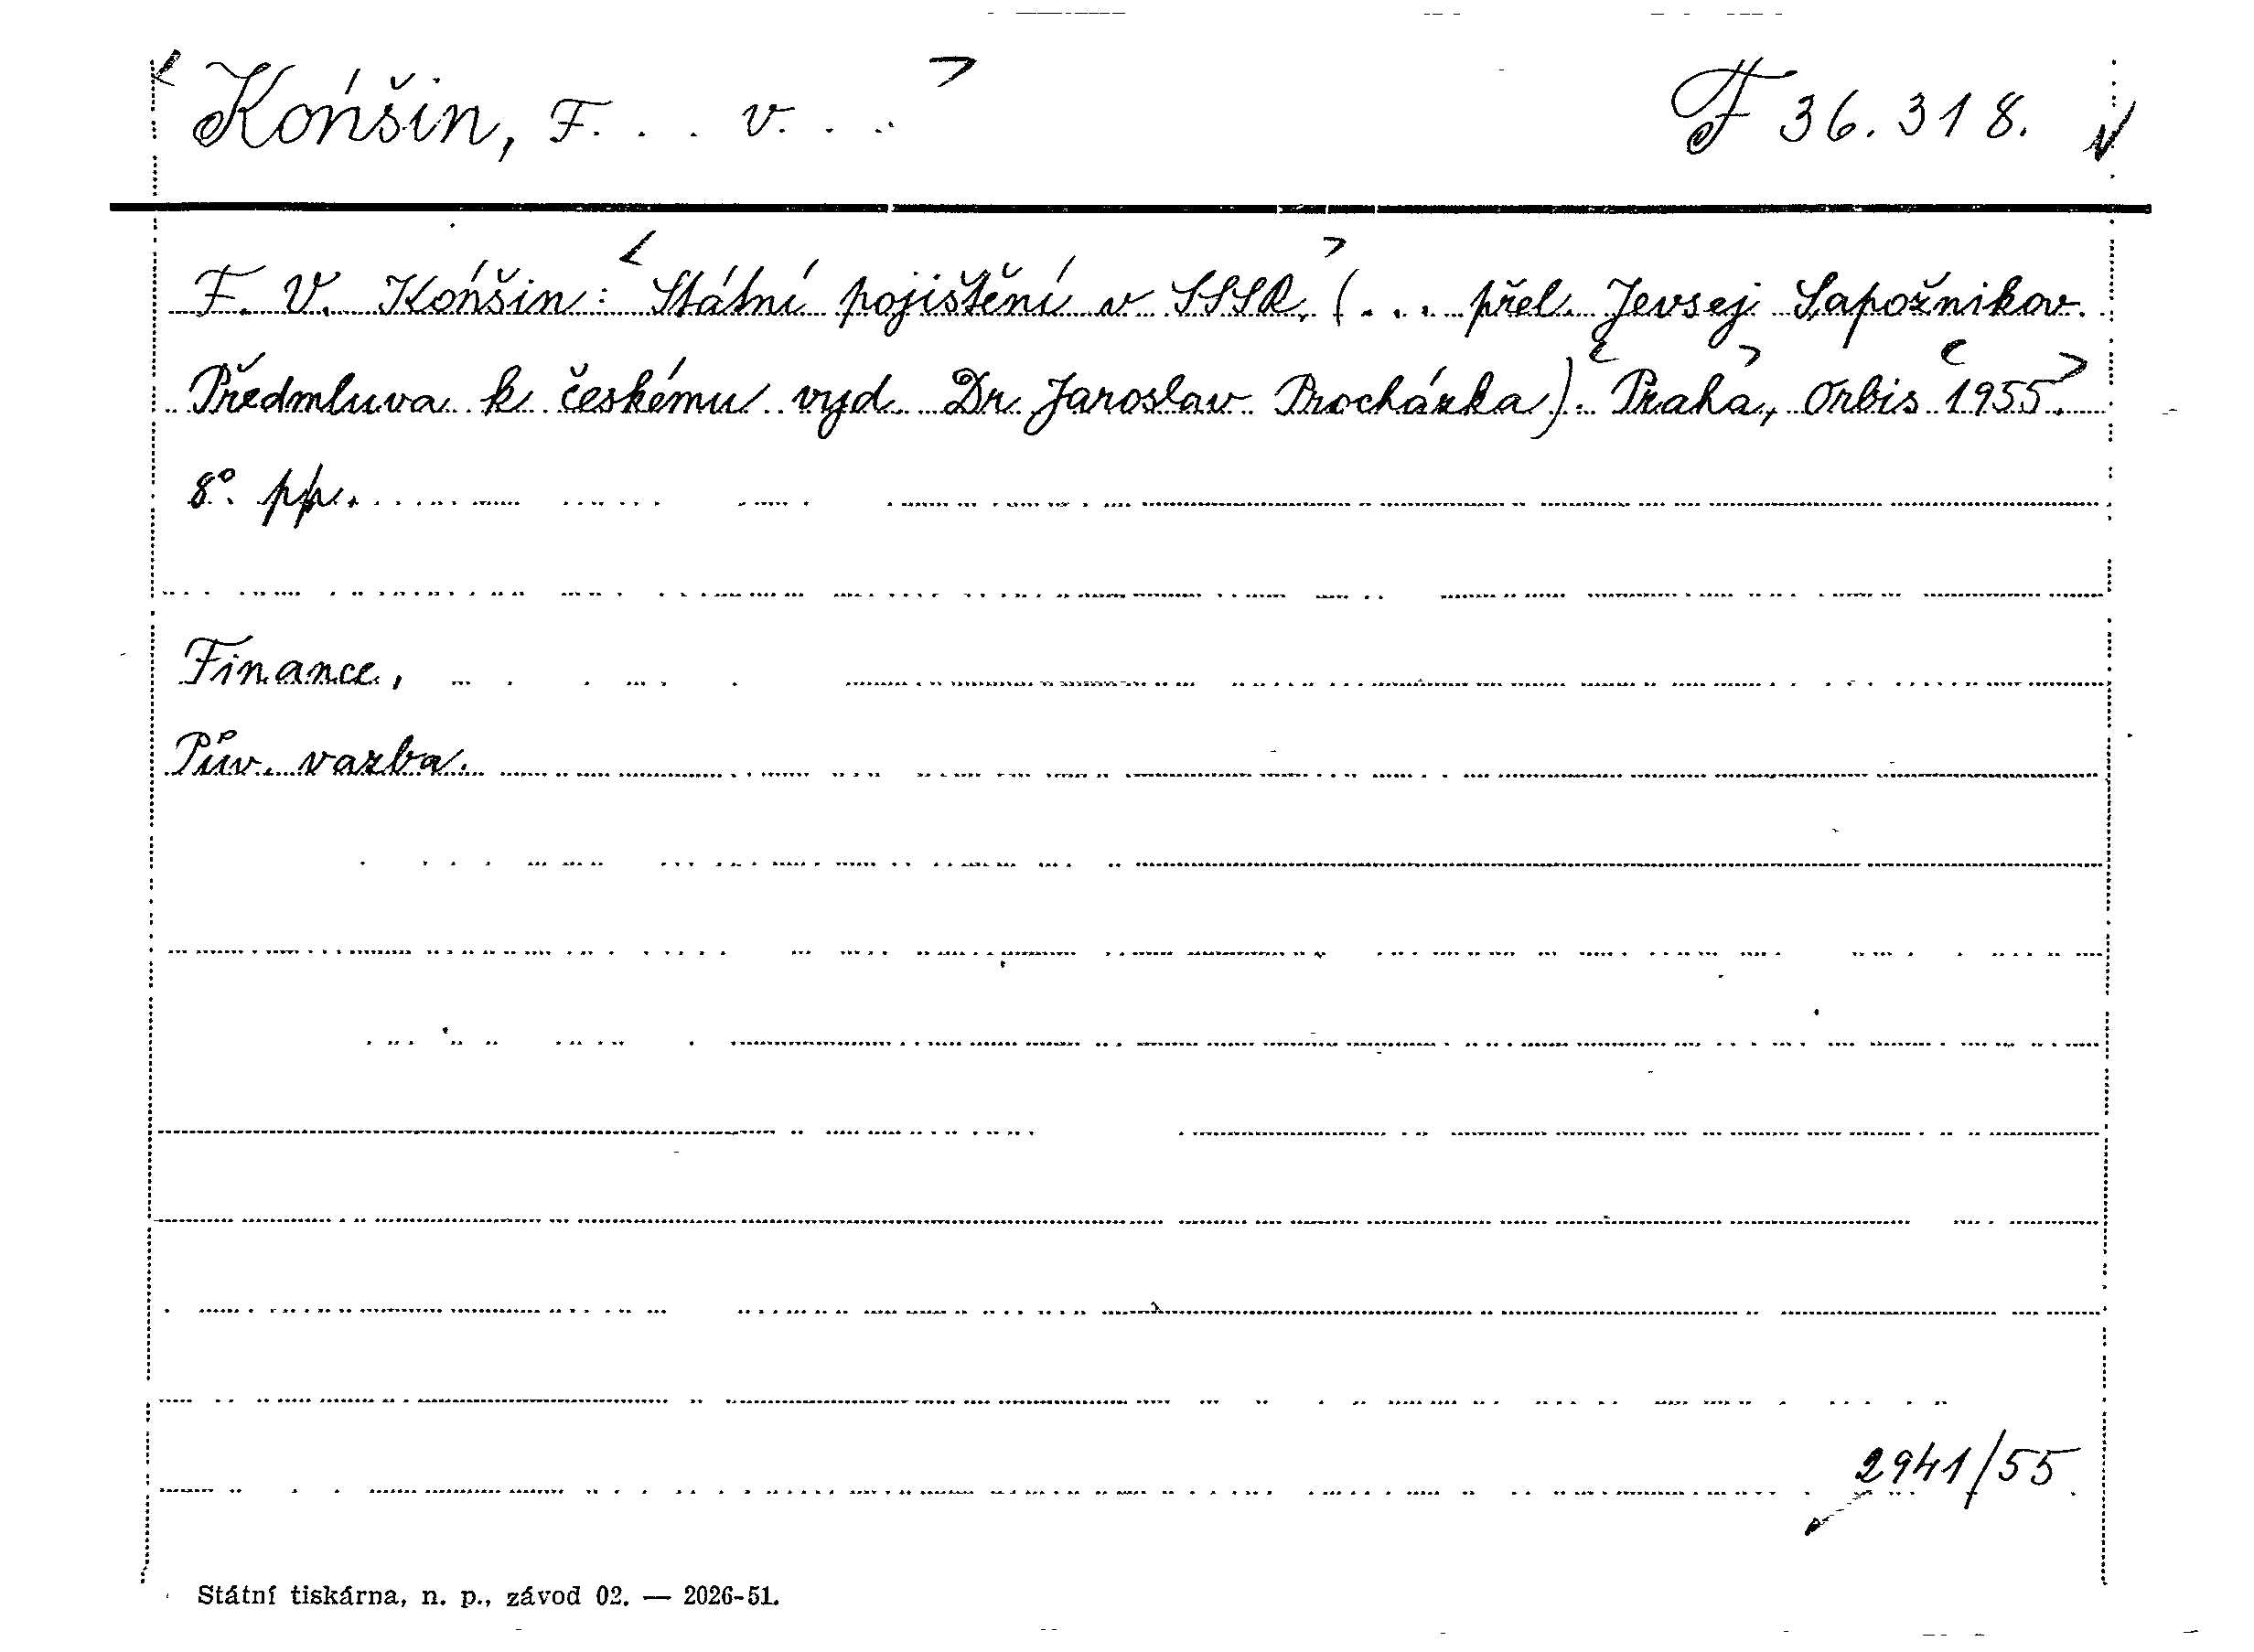 Końšin, F. . . v. . . F 36.318.
F. V. Końšin: Státní pojištění v SSSR. (... přel. Jevsej Sapožnikov.
Předmluva k českému vyd. Dr. Jaroslav Procházka). Praha, Orbis 1955.
8°. pp.
Finance,
Pův. vazba.
2941/55
Státní tiskárna, n. p., závod 02. — 2026-51.